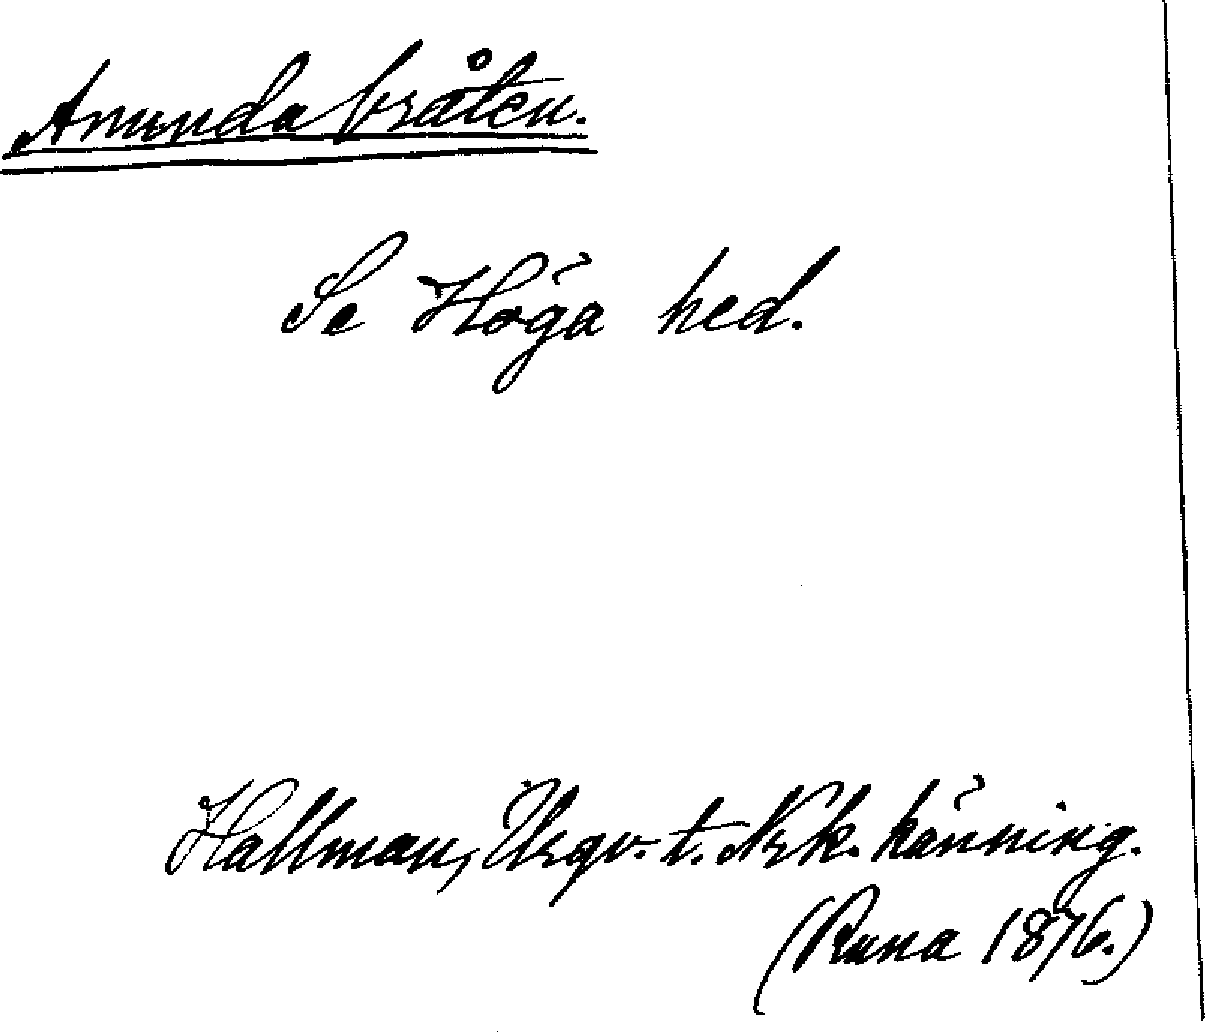 Anundabråten.
Se Höga hed.
Hallman, Ürgv. t. Nrk. känning.
(Runa 1876.)